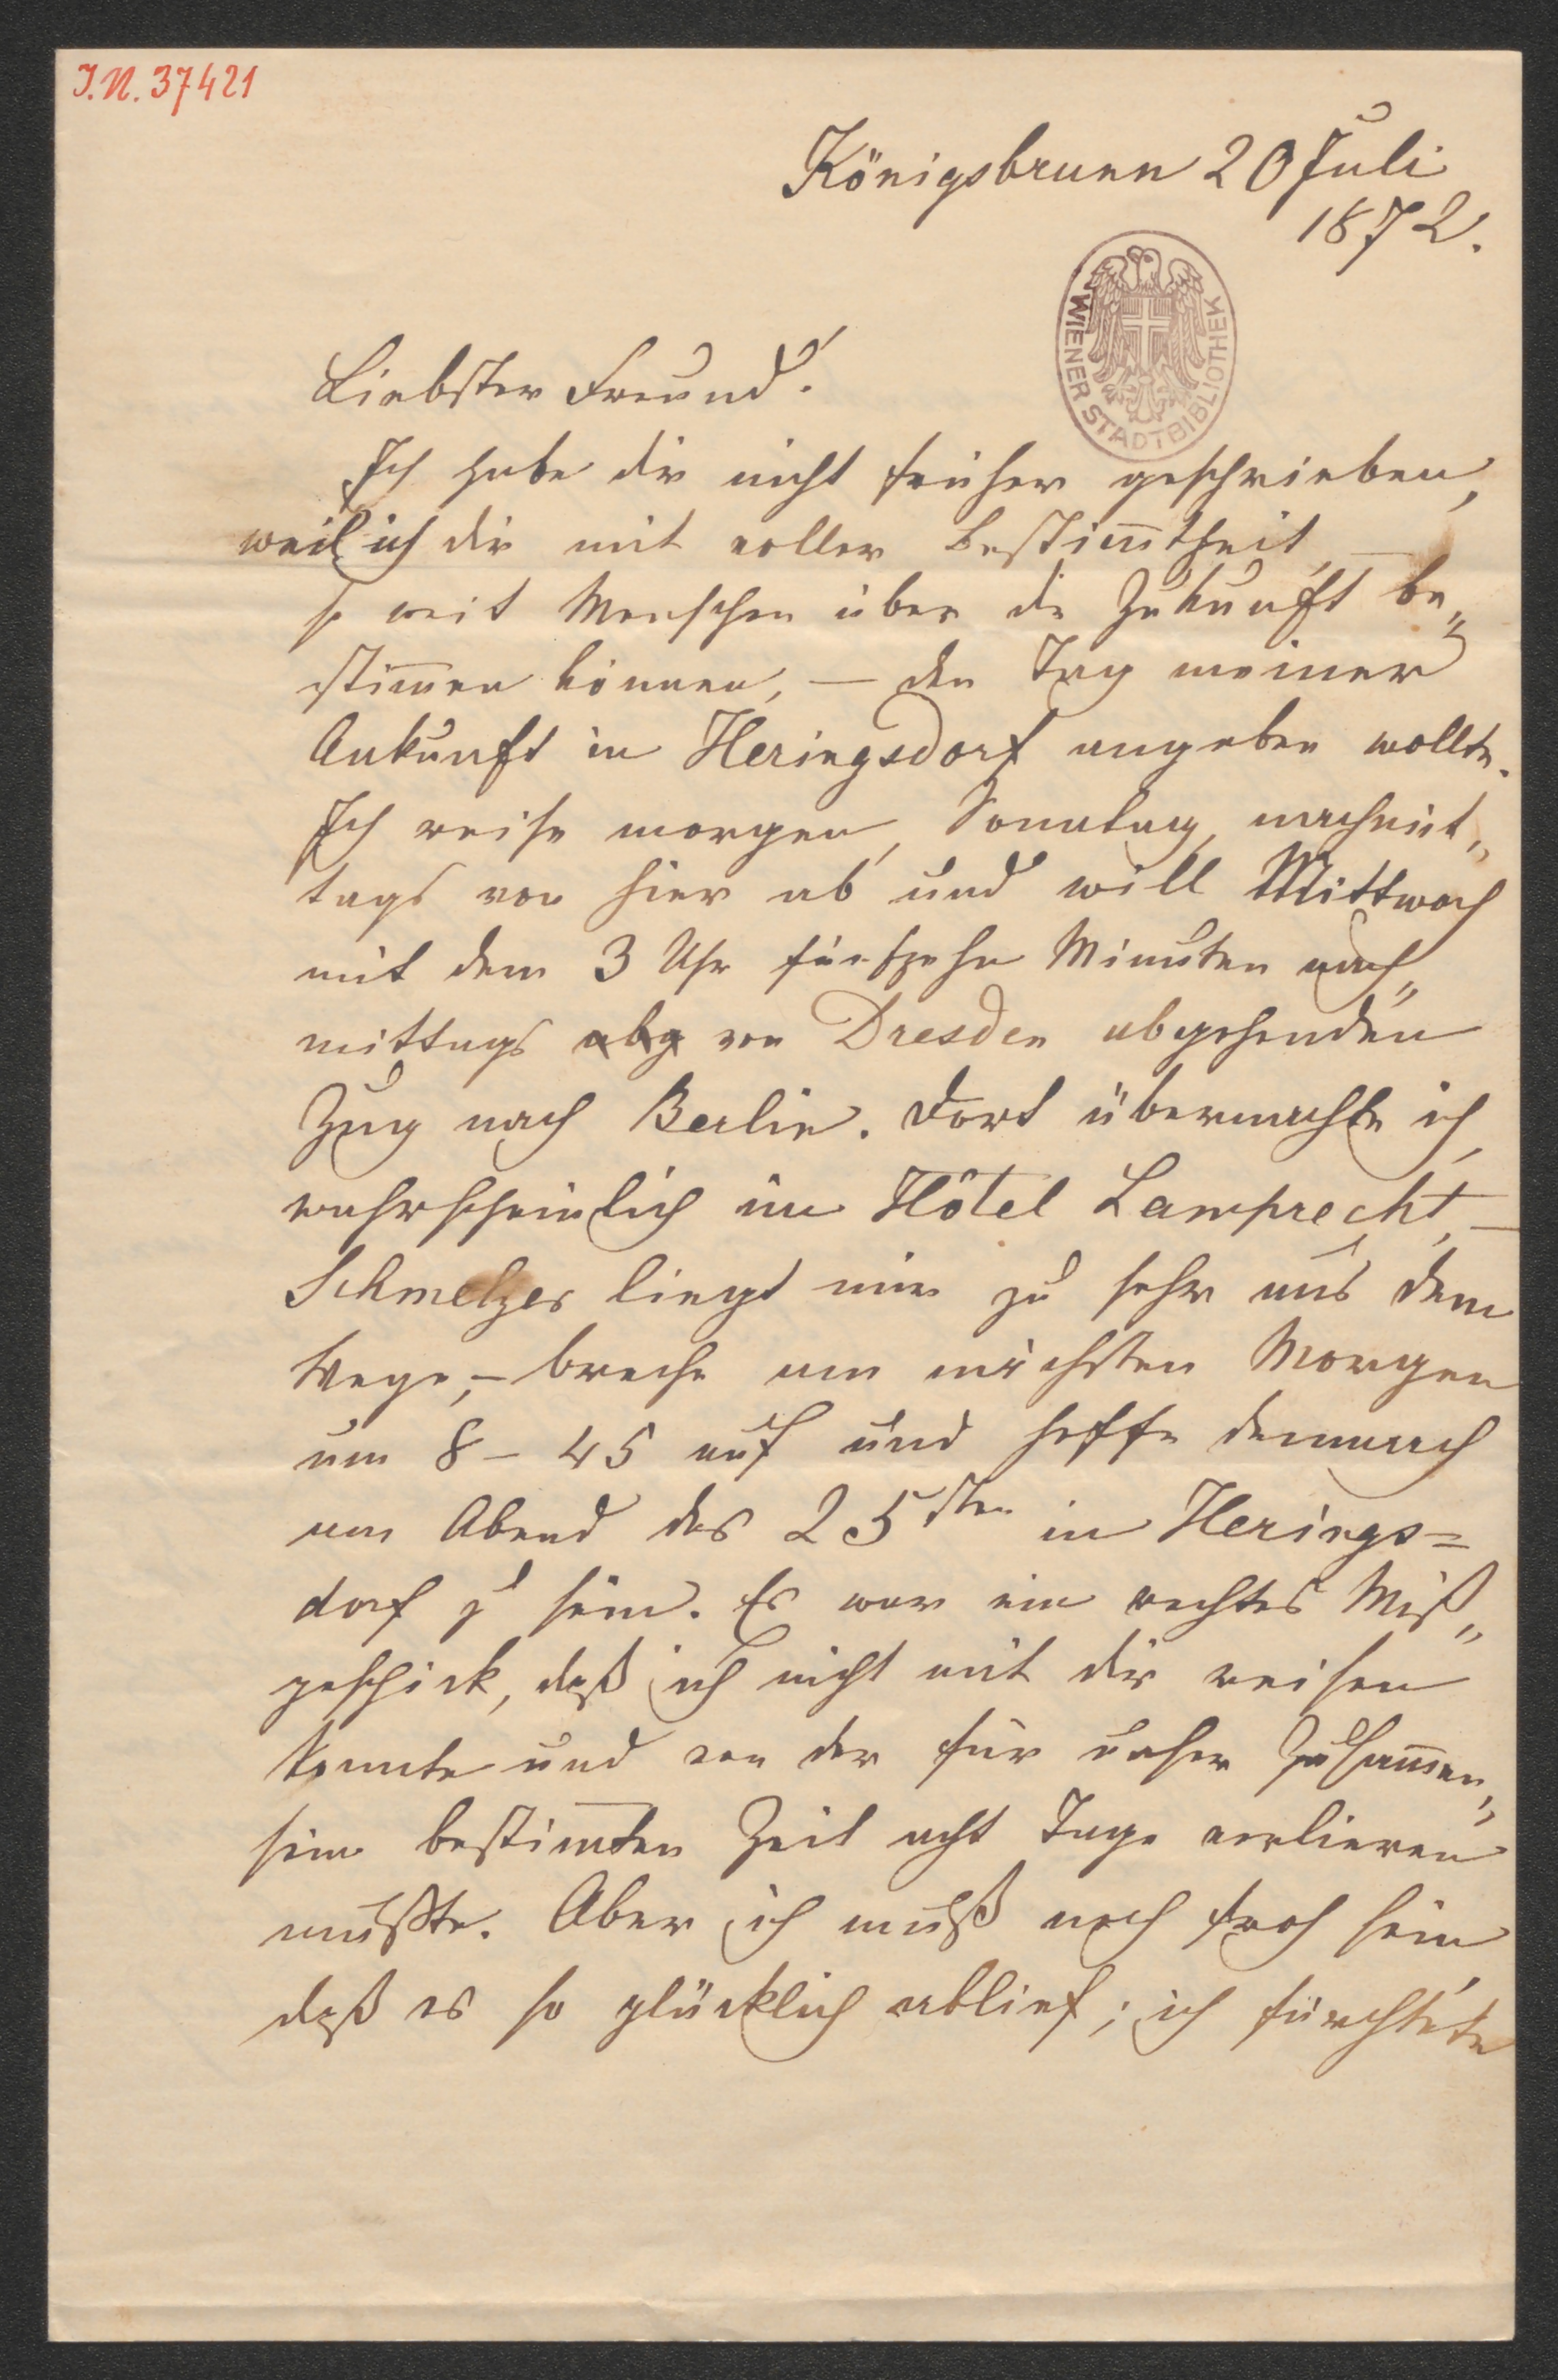 I.N. 37421
Königsbrunn 20 Juli
1872.
WIENER STADTBIBLIOTHEK
Liebster Freund!
Ich habe dir nicht früher geschrieben,
weil ich dir mit voller Bestim̄theit, –
so weit Menschen über die Zukunft be„
stim̄en können, – den Tag meiner
Ankunft in Heringsdorf angeben wollte.
Ich reise morgen, Sonntag, nachmit„
tags von hier ab und will Mittwoch
mit dem 3 Uhr fünfzehn Minuten nach„
mittags abg von Dresden abgehenden
Zug nach Berlin. Dort übernachte ich,
wahrscheinlich im Hôtel Lamprecht, –
Schmelzer liegt mir zu sehr aus dem
Wege, – breche am nächsten Morgen
um 8 – 45 auf und hoffe demnach
am Abend des 25sten in Herings=
dorf zu sein. Es war ein rechtes Miß„
geschick, daß ich nicht mit dir reisen
konnte und von der für unser Zusam̄en„
sein bestim̄ten Zeit acht Tage verlieren
mußte. Aber ich muß noch froh sein,
daß es so glücklich ablief; ich fürchtete